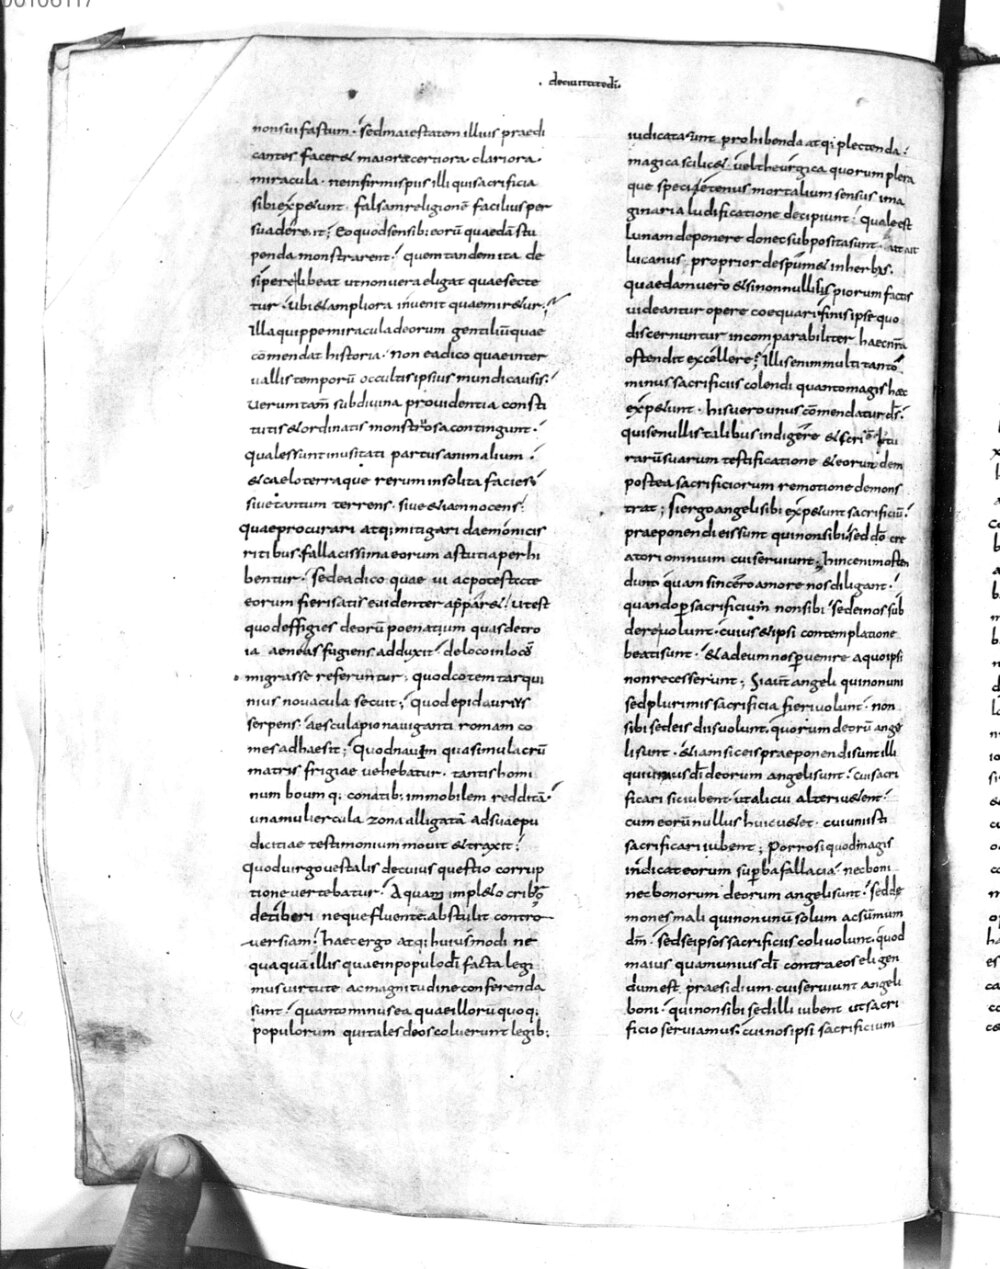 00106117
· deciuitatedī·
nonsui fastum· sed maiestatem illius praedi
cantes facere& maiora certiora clariora
miracula· neinfirmispiis illi quisacrificia
sibi exp&unt· falsamreligionē faciliusper
suaderent; Eoquodsensib; eorū quaedā stu
penda monstrarent· quem tandem ita de
sipere libeat utnonuera eligat quaesecte
tur· ubi&ampliora inuenit quaemir&ur·
Illa quippe miracula deorum gentiliū quae
cōmendat historia· non eadico quaeinter
uallis temporū occultis ipsius mundi causis·
uerumtam̄ subdiuina prouidentia consti
tutis &ordinatis monstrosa contingunt·
qualessunt inusitati partus animalium·
&caeloterraque rerum insolita facies
siuetantum terrens· siue &iamnocens·
quaeprocurari atq; mitigari daemonicis
ritibus fallacissima eorum astutia perhi
bentur· sedeadico quae ui acpotestate
eorum fieri satis euidenter appar&· utest
quod effigies deorū poenatium quasdetro
ia aeneas fugiens adduxit· delocoinlocū
migrasse referuntur· quodcotem tarqui
nius nouacula secuit; quodepidaurius
serpens· aesculapio nauiganti romam co
mes adhaesit; Quodnauim quasimulacrū
matris frigiae uehebatur· tantis homi
num boum q; conatib; immobilem redditā
unamuliercula zona alligatā adsuaepu
dicitiae testimonium mouit &traxit;
quoduirgouestalis decuius questio corrup
tioneuertebatur· Aquam impl&o cribro
detiberi neque fluente abstulit contro
uersiam· haec ergo atq; huiusmodi ne
quaquā illis quaeinpopulo dī facta legi
mus uirtute ac magnitudine conferenda
sunt· quantominusea quaeillorū quoq;
populorum quitales deos coluerunt legib;
iudicata sunt prohibenda atq; plectenda·
magica scilic& uel theurgica quorum plera
que specietenus mortalium sensus ima
ginaria ludificatione decipiunt· quale est
lunam deponere donec subpositas unt· ut ait
lucanus proprior despum& inherbas·
quaedamuero &sinonnullis piorum factis
uideantur opere coequari finis ipse quo
discernuntur incomparabiliter haec nra
ostendit excellere· Illis enim multi tanto
minus sacrificiis colendi quantomagis haec
exp&unt· his uero unus cōmendatur dī·
quise nullis talibus indigere & scri
rarū suarum testificatione &eorundem
postea sacrificiorum remotione demons
trat; siergo angeli sibi exp&unt sacrificiū·
praeponendi eis sunt quinonsibi sed dō cre
atori omnium cui seruiunt; hincenim osten
dunt quam sincero amore nos diligant·
quando p sacrificium nonsibi sed ei nos sub
dere uolunt· cuius &ipsi contemplatione
beati sunt· &adeum nos peruenire aquo ipsi
nonrecesserunt; Siaut angeli quinonuni
sed plurimis sacrificia fieri uolunt· non
sibi sedeis diis uolunt quorum deorū ange
li sunt· &iam sic eis praeponendi sunt illi
qui unius dī deorum angeli sunt· cui sacri
ficari sic iubent· ut alicui alteri u&ent·
cum eorū nullus huic u&et· cui uni isti
sacrificari iubent; Porro si quod magis
indicat eorum superba fallacia· nec boni
nec bonorum deorum angeli sunt· sed de
mones mali quinonunū solum ac sūmum
dm̄· sed se ipsos sacrificiis coli uolunt· quod
maius quam unius dī contra eos eligen
dum est praesidium cui seruiunt angeli
boni· quinonsibi sed illi iubent ut sacri
ficio seruiamus· cuinosipsi sacrificium